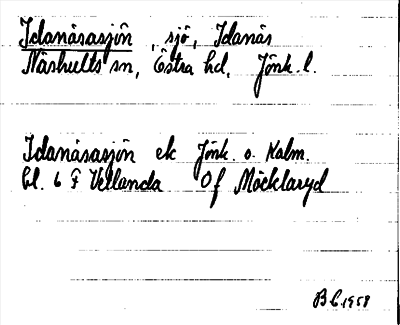 Idanäsasjön, sjö, Idanäs
Näshults sn, Östra hd, Jönk. l.
Idanäsasjön ek Jönk. o. Kalm.
bl. 6 F Vetlanda Of Möcklaryd
B C 1958